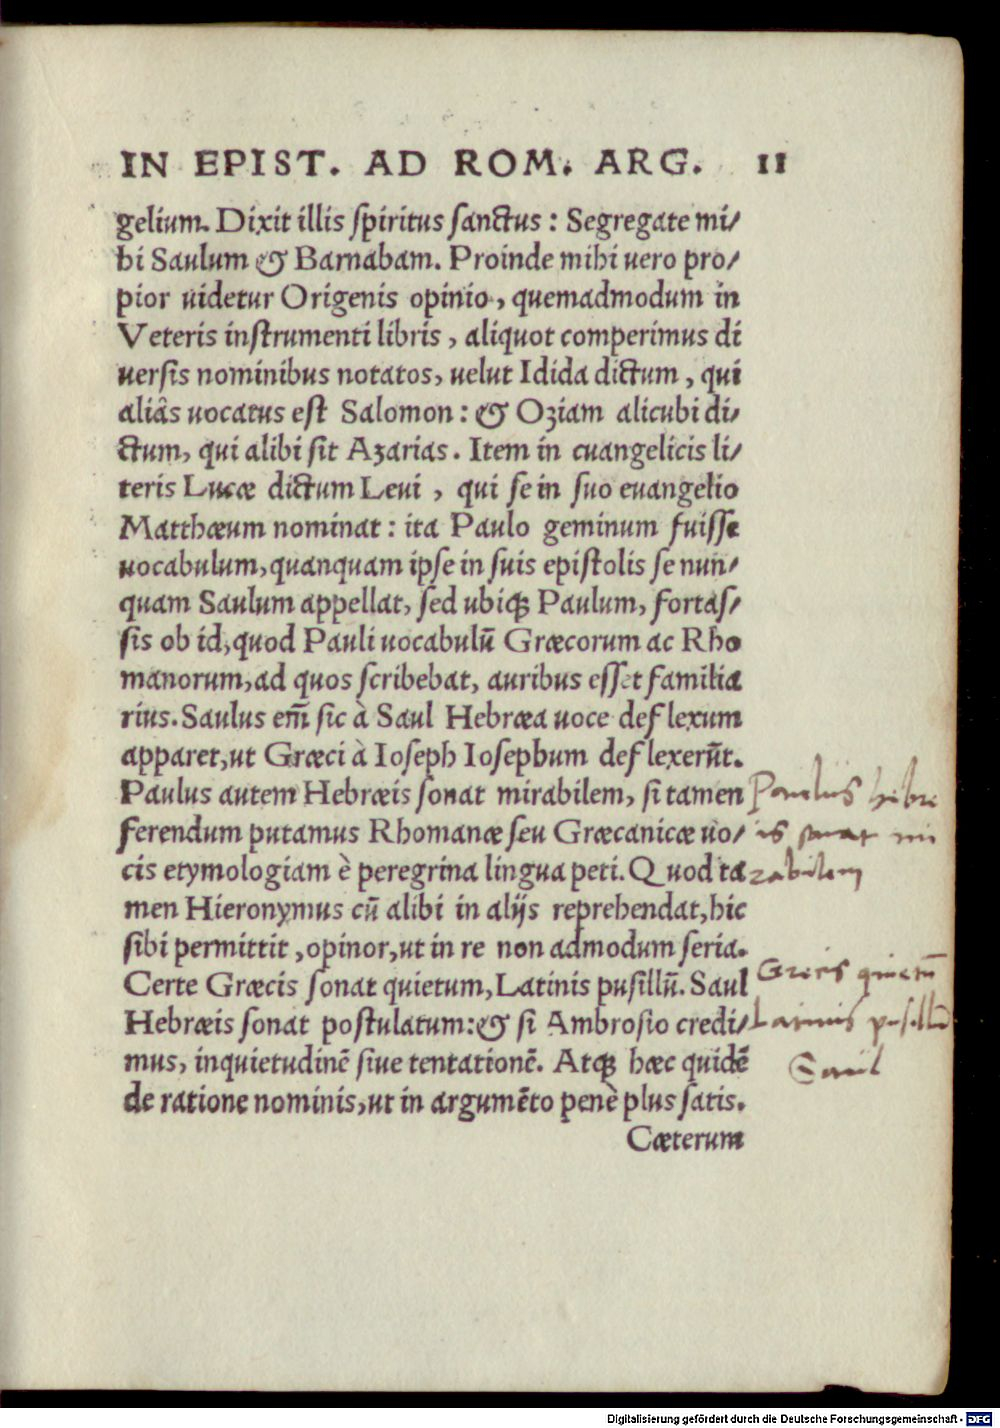 IN EPIST. AD ROM. ARG. 11
gelium. Dixit illis spiritus sanctus : Segregate mi/
hi Saulum & Barnabam. Proinde mihi uero pro/
pior uidetur Origenis opinio, quemadmodum in
Veteris instrumenti libris , aliquot comperimus di
uersis nominibus notatos, uelut Idida dictum , qui
aliâs uocatus est Salomon : & Oziam alicubi di/
ctum, qui alibi sit Azarias. Item in euangelicis li/
teris Lucæ dictum Leui , qui se in suo euangelio
Matthæum nominat : ita Paulo geminum fuisse
uocabulum, quanquam ipse in suis epistolis se nun/
quam Saulum appellat, sed ubiqꝫ Paulum, fortas/
sis ob id, quod Pauli uocabulū Græcorum ac Rho
manorum, ad quos scribebat, auribus esset familia
rius. Saulus em̄ sic à Saul Hebræa uoce deflexum
apparet, ut Græci à Ioseph Iosephum deflexerūt.
Paulus autem Hebræis sonat mirabilem, si tamen
ferendum putamus Rhomanæ seu Græcanicæ uo/
cis etymologiam è peregrina lingua peti. Quod ta
men Hieronymus cū alibi in alijs reprehendat, hic
sibi permittit , opinor, ut in re non admodum seria.
Certe Græcis sonat quietum, Latinis pusillū. Saul
Hebræis sonat postulatum: & si Ambrosio credi/
mus, inquietudinē siue tentationē. Atqꝫ hæc quidē
de ratione nominis, ut in argumēto penè plus satis.
Cæterum
Paulus hebre
is sonat mi
rabilem
Grecis quietū
Latinis pusillū
Saul
Digitalisierung gefördert durch die Deutsche Forschungsgemeinschaft - DFG